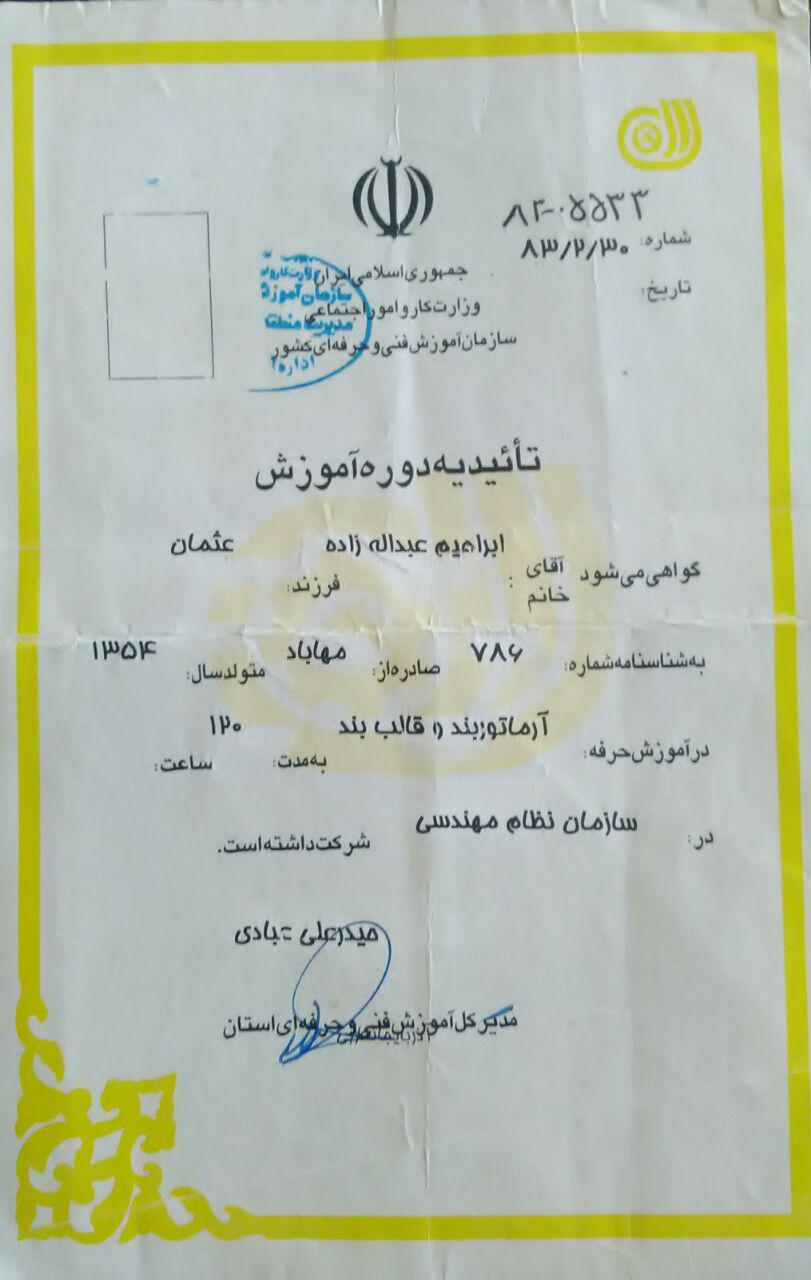 ۸۲-۰۵۵۳۳
شماره:
۸۳/۲/۳۰
تاریخ:
جمهوری اسلامی ایران
وزارت کار و امور اجتماعی
سازمان آموزش فنی و حرفه‌ای کشور
سازمان آموز
مدیریت منطقه
اداره
تأئیدیه دوره آموزش
ابراهیم عبداله زاده عثمان
گواهی می‌شود آقای خانم : فرزند:
به شناسنامه شماره: ۷۸۶ صادره از: مهاباد متولد سال: ۱۳۵۴
در آموزش حرفه: آرماتوربند و قالب بند به مدت: ۱۲۰ ساعت:
در: سازمان نظام مهندسی شرکت داشته است.
حیدرعلی عبادی
مدیر کل آموزش فنی و حرفه‌ای استان